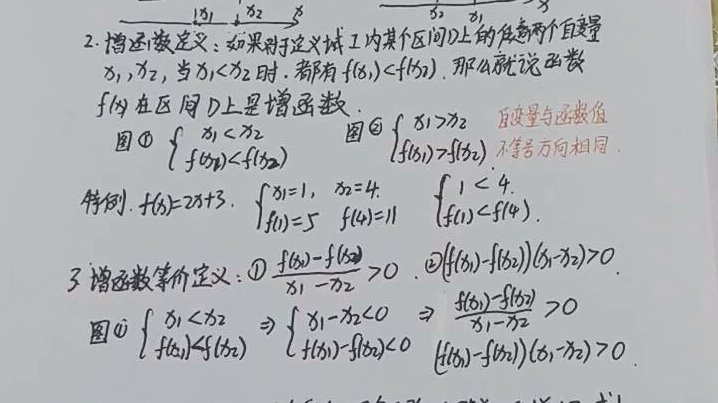 x₁ x₂ x x₂ x₁ x
2. 增函数定义：如果对于定义域 I 内某个区间D上的任意两个自变量
x₁, x₂, 当x₁<x₂时. 都有 f(x₁)<f(x₂). 那么就说函数
f(x) 在区间D上是增函数.
图① { x₁<x₂ 图② { x₁>x₂ 自变量与函数值
f(x₁)<f(x₂) f(x₁)>f(x₂). 不等号方向相同.
特例. f(x)=2x+3. { x₁=1, x₂=4. { 1<4.
f(1)=5 f(4)=11 f(1)<f(4).
3. 增函数等价定义：① \frac{f(x₁)-f(x₂)}{x₁-x₂}>0. ②(f(x₁)-f(x₂))(x₁-x₂)>0.
图① { x₁<x₂ ⇒ { x₁-x₂<0 ⇒ \frac{f(x₁)-f(x₂)}{x₁-x₂}>0
f(x₁)<f(x₂) f(x₁)-f(x₂)<0 (f(x₁)-f(x₂))(x₁-x₂)>0.